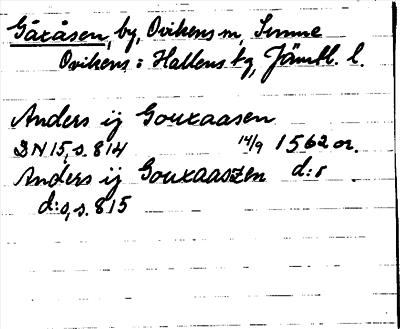 Gåxåsen, by, Ovikens sn, Sunne
Ovikens o Hallens tg, Jämtl. l.
Anders ij Gouxaasen
DN 15, s. 814 14/9 1562 or.
Anders ij Gouxaaszen d:o
d:o, s. 815